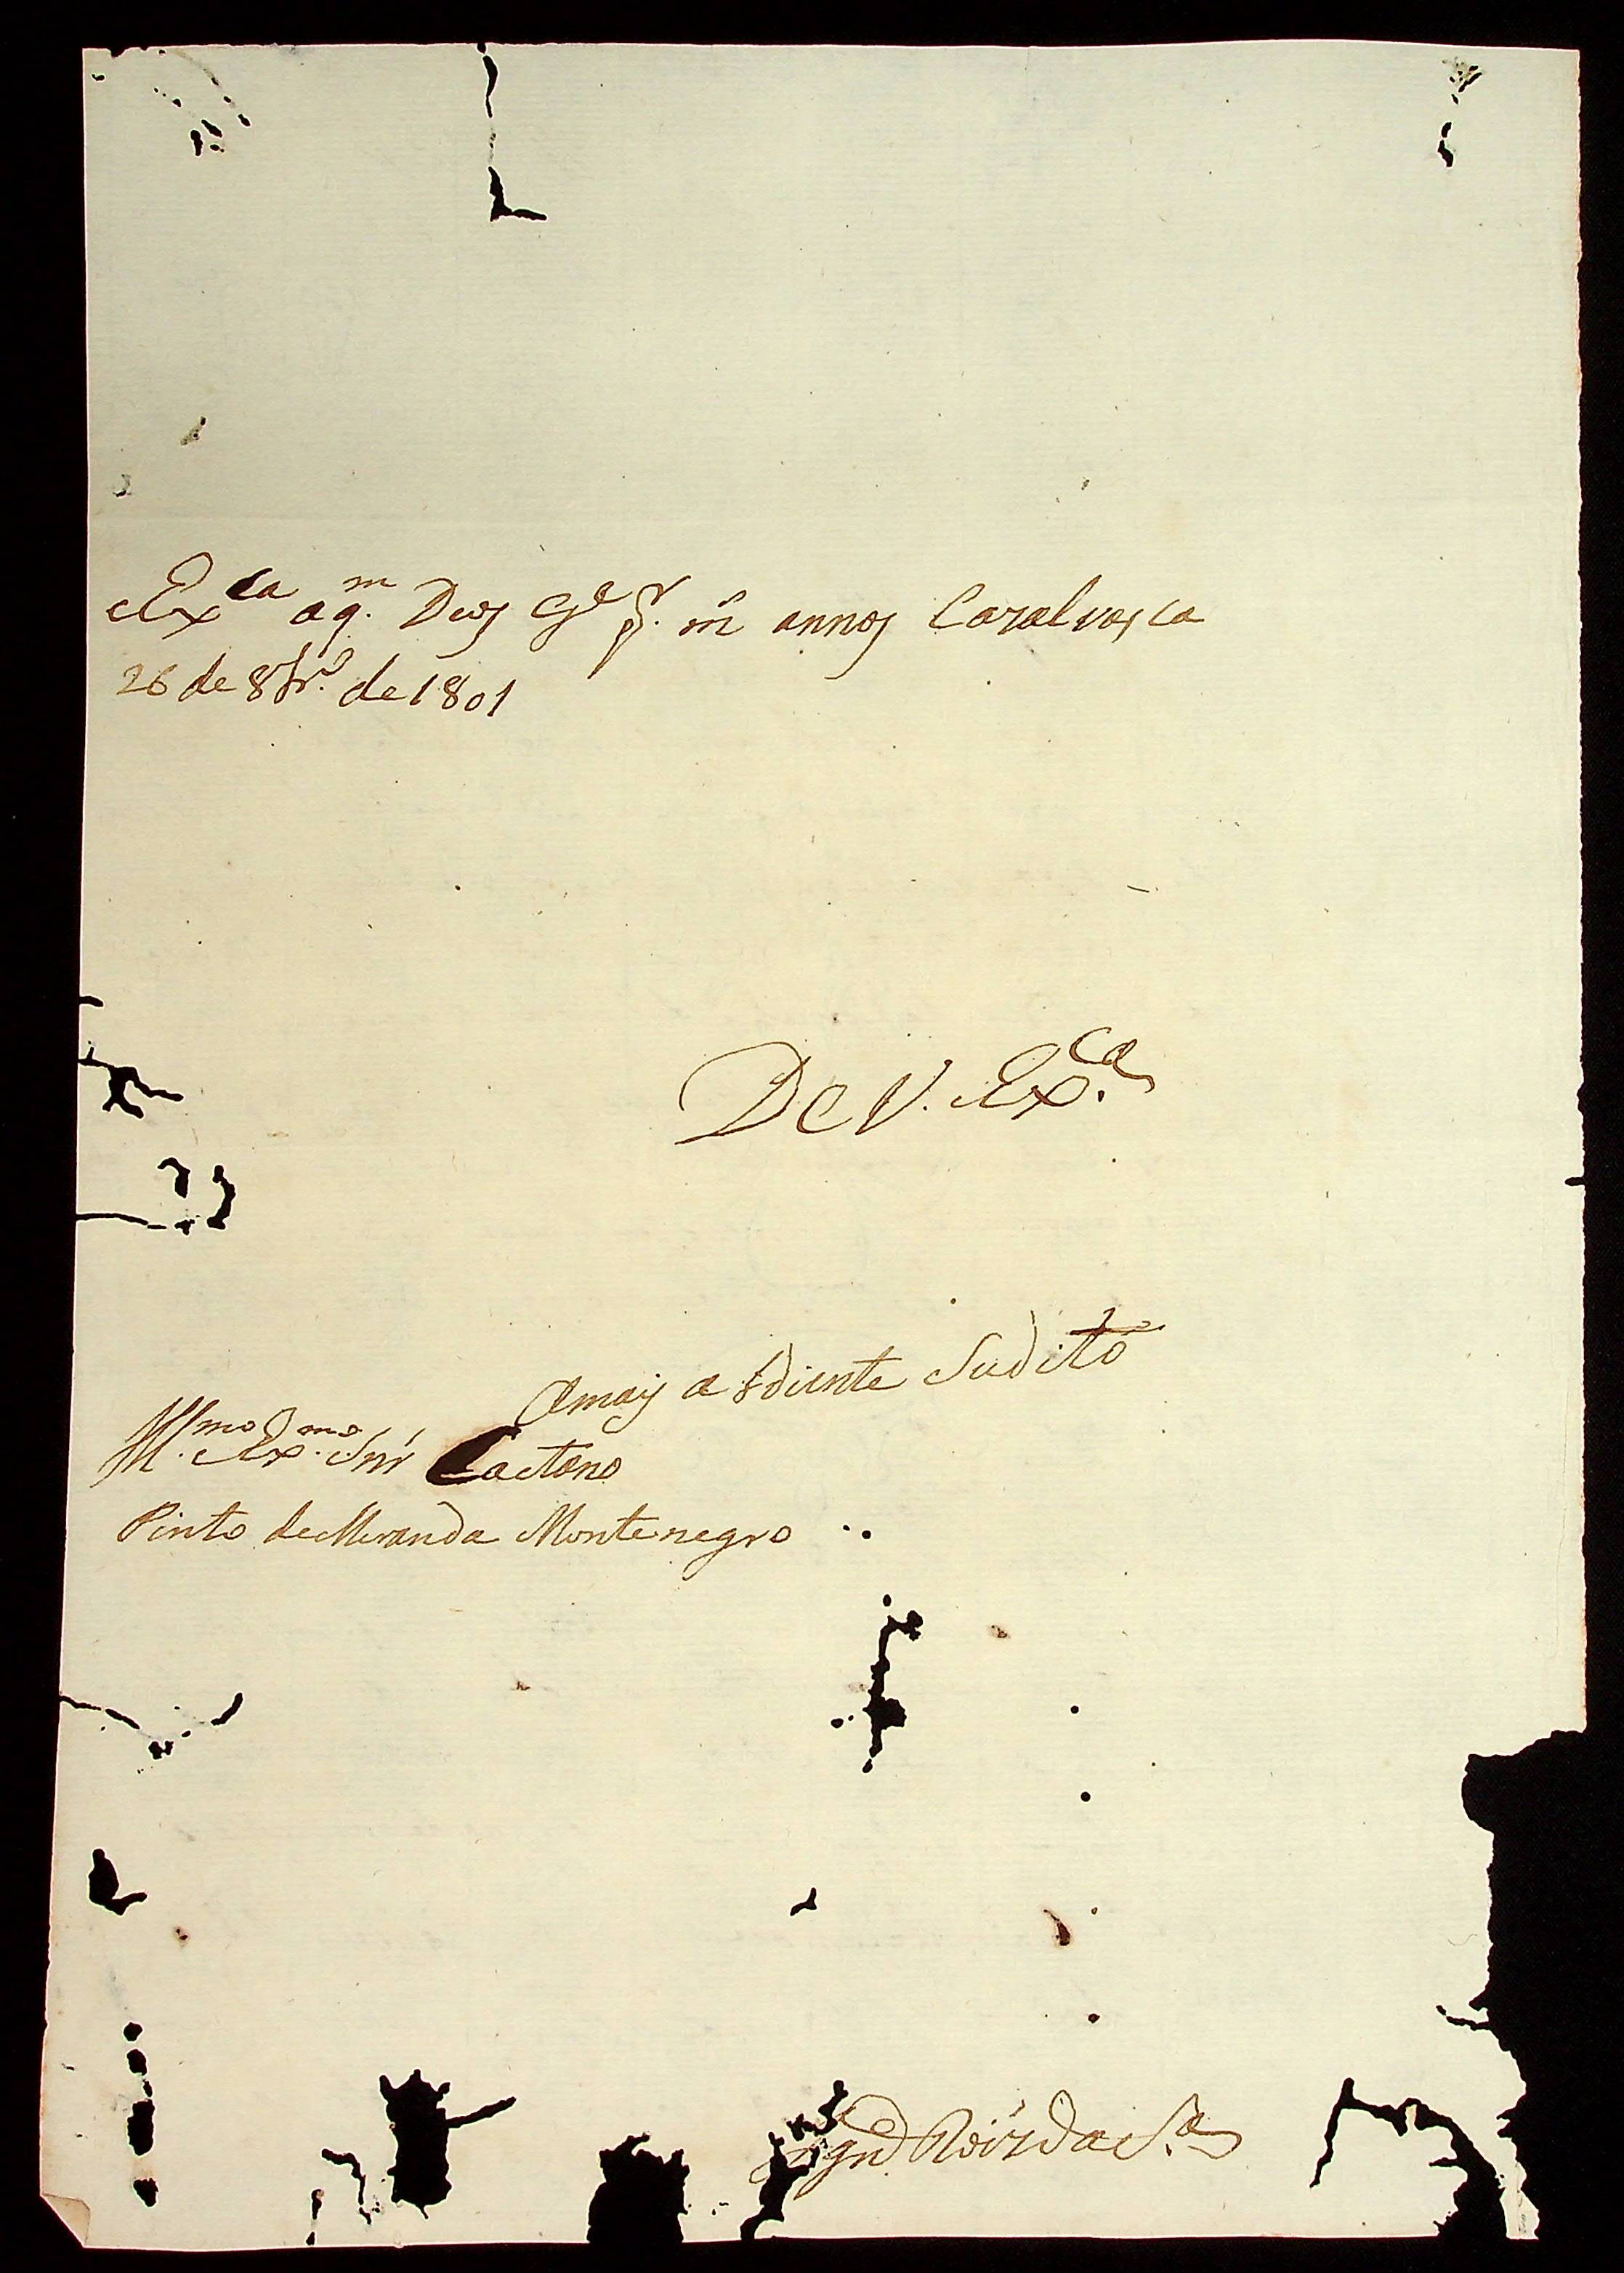 Exca aq.m Deos Gde pr. m̃ annos Cazalvasca
26 de 8br.o de 1801
De V. Exca
O mais a bdiente Sudito
Ill.mo Ex.mo Snr̃ Caetano
Pinto de Meranda Montenegro
Roiz da S.a